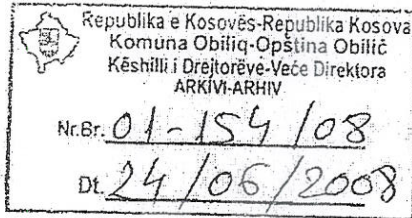 Republika e Kosovës-Republika Kosova
Komuna Obiliq-Opština Obilić
Këshilli i Drejtorëve-Veće Direktora
ARKIVI-ARHIV
Nr.Br. 01-154/08
Dt. 24/06/2008